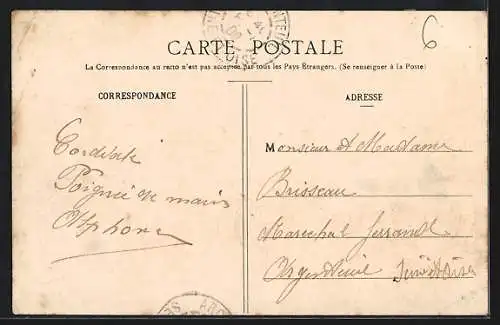 6
CARTE POSTALE
La Correspondance au recto n'est pas acceptée par tous les Pays Étrangers. (Se renseigner à la Poste)
CORRESPONDANCE
ADRESSE
Cordiale
Poignée de mains
Alphonse
Monsieur & Madame
Brisseau
Marechal ferrand
Argenteuil Seine & Oise